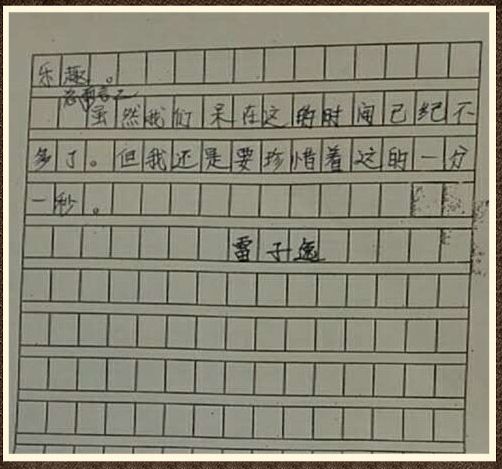 乐趣。
虽然我们呆在这的时间已纪不
多了。但我还是要珍惜着这的一分
一秒。
雷子逸